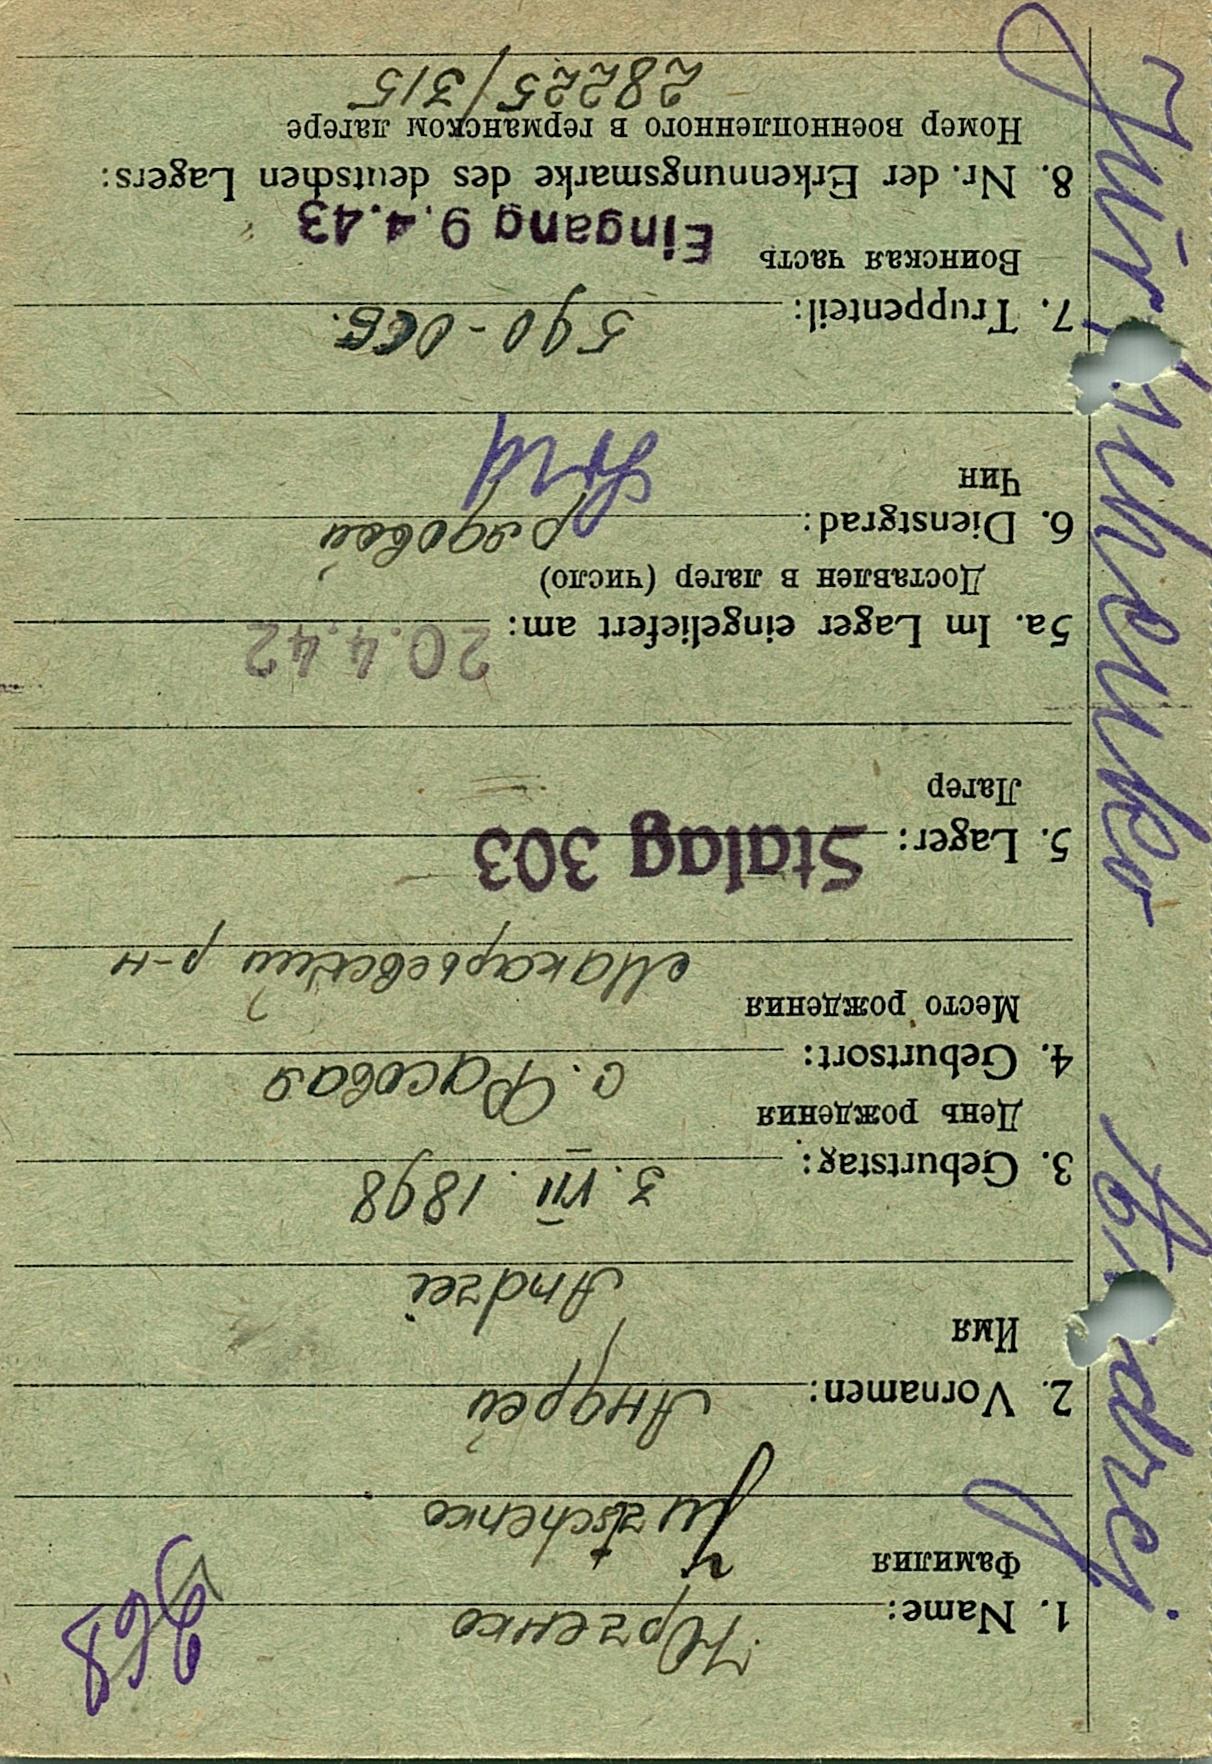 1. Name: Юрченко
Фамилия
Jurtschenko
2. Vornamen: Андрей
Имя
Andrei
3. Geburtstag: 3. VII. 1898
День рождения
4. Geburtsort: с. Фасовая
Место рождения
Макарьевский р-н
5. Lager: Stalag 303
Лагер
5a. Im Lager eingeliefert am: 20.4.42
Доставлен в лагер (число)
6. Dienstgrad: рядовой
Чин
7. Truppenteil: 590 - ОСБ.
Воинская часть
Eingang 9.4.43
8. Nr. der Erkennungsmarke des deutschen Lagers:
Номер военнопленного в германском лагере
28225/315
Jurtschenko Andrej